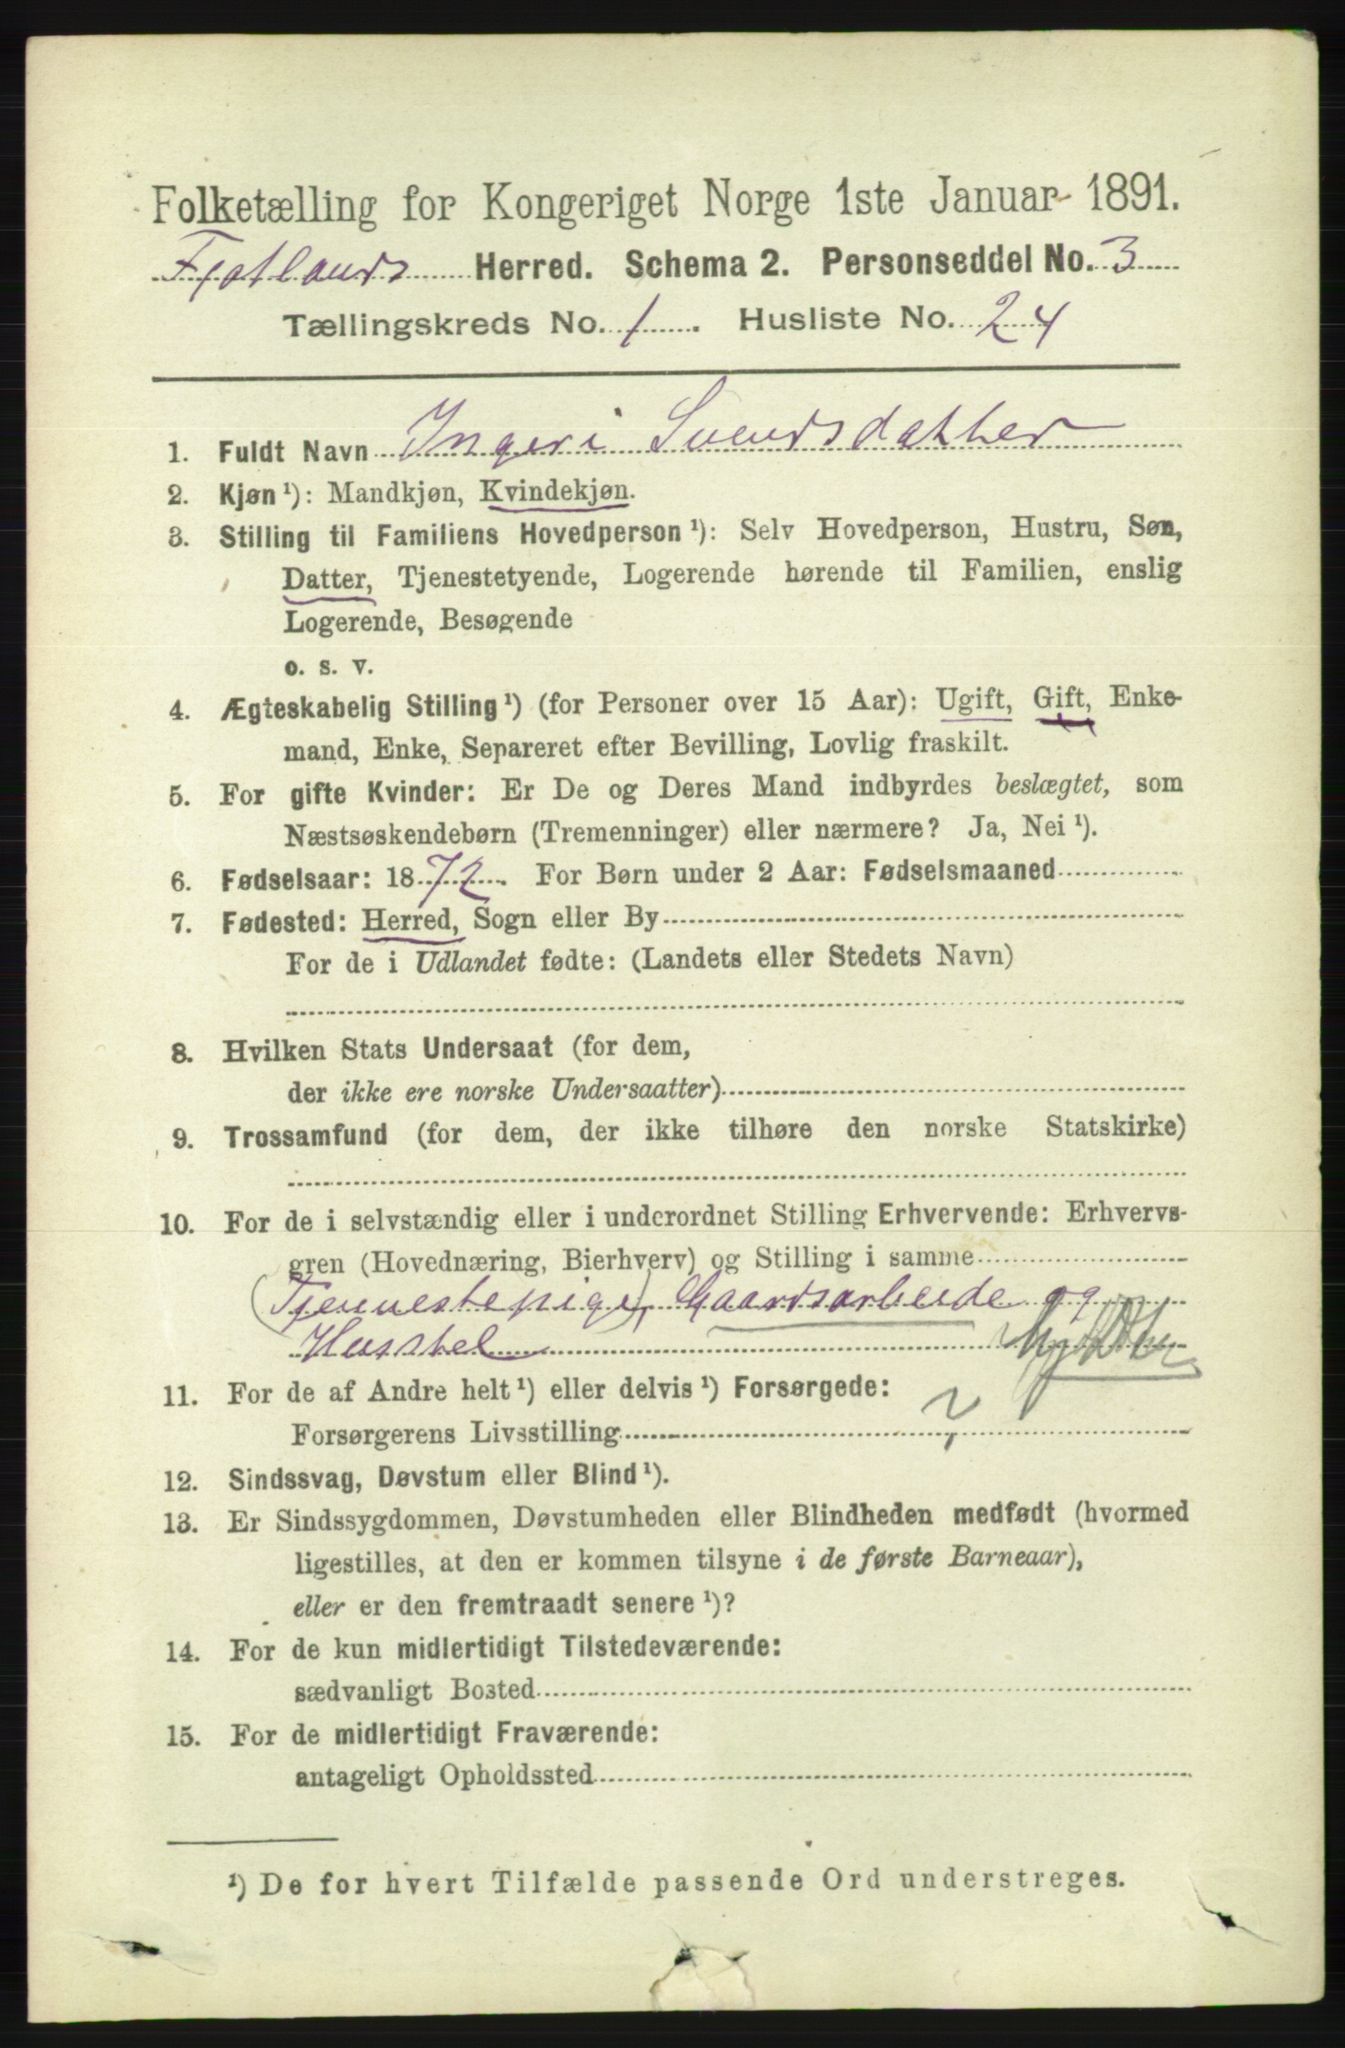 Folketælling for Kongeriget Norge 1ste Januar 1891.
Fjotlands Herred. Schema 2. Personseddel No. 3
Tællingskreds No. 1. Husliste No. 24
1. Fuldt Navn Ingeri Svendsdatter
2. Kjøn ¹): Mandkjøn, Kvindekjøn.
3. Stilling til Familiens Hovedperson ¹): Selv Hovedperson, Hustru, Søn,
Datter, Tjenestetyende, Logerende hørende til Familien, enslig
Logerende, Besøgende
o. s. v.
4. Ægteskabelig Stilling ¹) (for Personer over 15 Aar): Ugift, Gift, Enke-
mand, Enke, Separeret efter Bevilling, Lovlig fraskilt.
5. For gifte Kvinder: Er De og Deres Mand indbyrdes beslægtet, som
Næstsøskendebørn (Tremenninger) eller nærmere? Ja, Nei ¹).
6. Fødselsaar: 1872. For Børn under 2 Aar: Fødselsmaaned
7. Fødested: Herred, Sogn eller By
For de i Udlandet fødte: (Landets eller Stedets Navn)
8. Hvilken Stats Undersaat (for dem,
der ikke ere norske Undersaatter)
9. Trossamfund (for dem, der ikke tilhøre den norske Statskirke)
10. For de i selvstændig eller i underordnet Stilling Erhvervende: Erhvervs-
gren (Hovednæring, Bierhverv) og Stilling i samme
(Tjennestepige) Gaardsarbeide og
Husstel
11. For de af Andre helt ¹) eller delvis ¹) Forsørgede:
Forsørgerens Livsstilling ?
12. Sindssvag, Døvstum eller Blind ¹).
13. Er Sindssygdommen, Døvstumheden eller Blindheden medfødt (hvormed
ligestilles, at den er kommen tilsyne i de første Barneaar),
eller er den fremtraadt senere ¹)?
14. For de kun midlertidigt Tilstedeværende:
sædvanligt Bosted
15. For de midlertidigt Fraværende:
antageligt Opholdssted
¹) De for hvert Tilfælde passende Ord understreges.